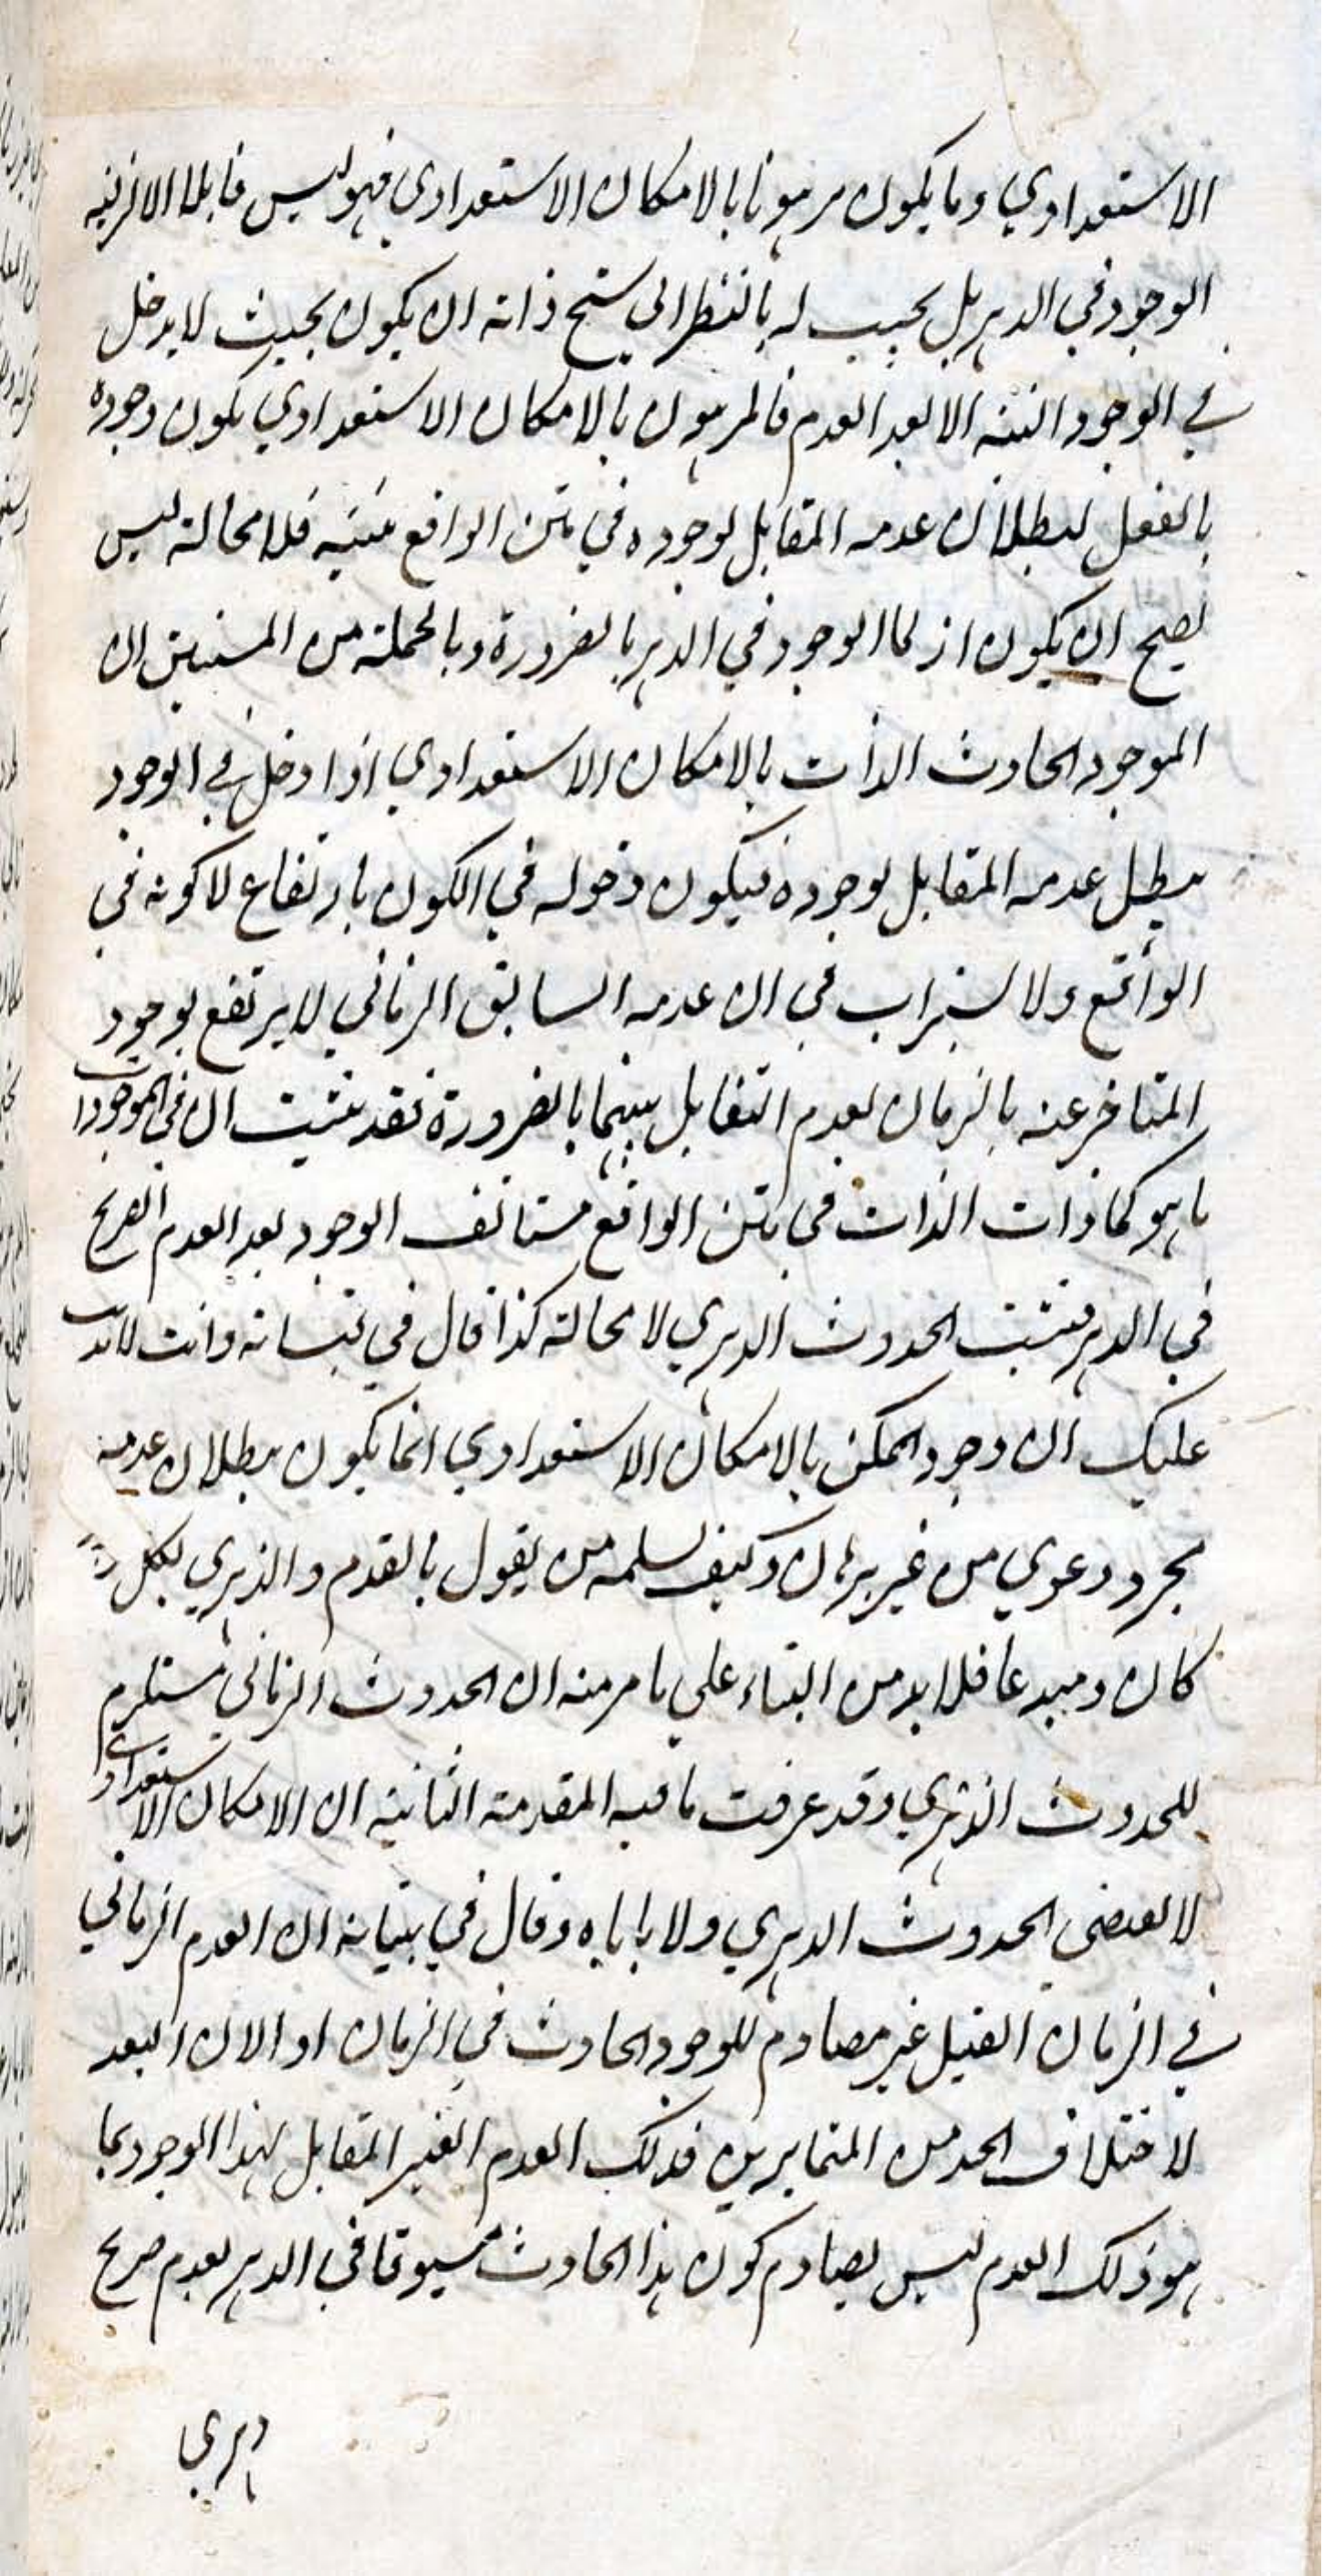 الاستعدادي وما يكون مرهونا بالامكان الاستعدادي فهو ليس قابلا لازلية
الوجود في الدهر بل يجب له بالنظر الى سنخ ذاته ان يكون بحيث لا يدخل
في الوجود البتة الا بعد العدم فالمرهون بالامكان الاستعدادي يكون وجوده
بالفعل لبطلان عدمه المقابل لوجوده في متن الواقع فلا محالة ليس
يصح ان يكون ازلي الوجود في الدهر بالضرورة وبالجملة من المستبين ان
الموجود الحادث الذات بالامكان الاستعدادي اذا دخل في الوجود
يبطل عدمه المقابل لوجوده فيكون دخوله في الكون بارتفاع لا كونه في
الواقع ولا يستراب في ان عدمه السابق الزماني لا يرتفع بوجود
المتاخر عنه بالزمان لعدم التقابل بينهما بالضرورة فقد ثبت ان في الموجودات
ما هو كما ذات الذات في متن الواقع مستانف الوجود بعد العدم الصريح
في الدهر فثبت الحدوث الدهري لا محالة كذا قال في وانت لا
عليك ان وجود الممكن بالامكان الاستعدادي انما يكون ببطلان عدمه
مجرد دعوي من غير برهان وكيف يسلمه من يقول بالقدم الدهري لكل
كان ومبدعا فلا بد من البناء على ما مر منه ان الحدوث الزماني مستلزم
للحدوث الدهري وقد عرفت ما فيه المقدمة الثانية ان الامكان الاستعدادي
لا يقتضي الحدوث الدهري ولا ياباه وقال في بيانه ان العدم الزماني
في الزمان القبل غير مصادم للوجود الحادث في الزمان او الان البعد
لاختلاف الحدين المتمايزين فذلك العدم الغير المقابل لهذا الوجود بما
هو ذلك العدم ليس يصادم كون هذا الحادث مسبوقا في الدهر بعدم صريح
دهري